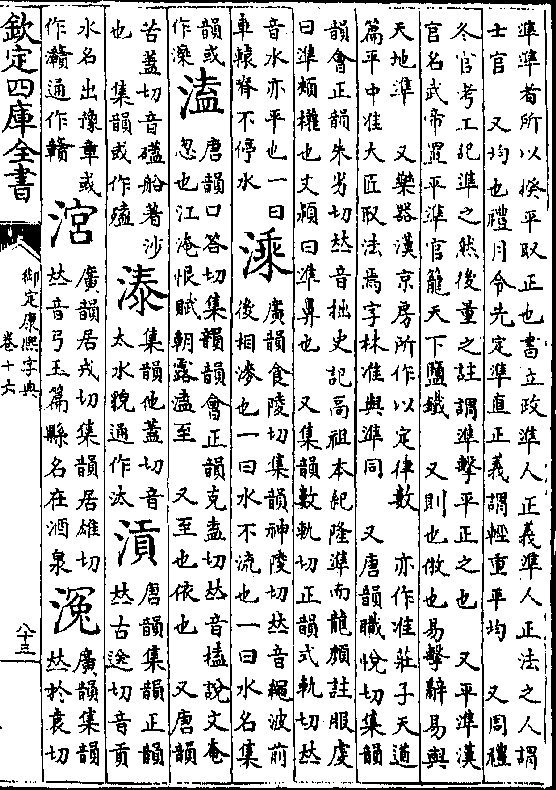 準準者所以揆平取正也書立政準人正義準人正法之人謂
士官　又均也禮月令先定準直正義謂輕重平均　又周禮
冬官考工記準之然後量之註謂準擊平正之也　又平準漢
官名武帝置平準官籠天下鹽鐵　又則也倣也易擊辭易與
天地準　又樂器漢京房所作以定律數　亦作准莊子天道
篇平中准大匠取法焉字林准與準同　又唐韻職悅切集韻
韻會正韻朱劣切𠀤音拙史記高祖本紀隆準而龍顏註服虔
曰準頰權也文穎曰準鼻也　又集韻數軌切正韻式軌切𠀤
音水亦平也一曰
車轅脊不停水
溗
廣韻食陵切集韻神陵切𠀤音繩波前
後相滲也一曰水不流也一曰水名集
韻或
作
溘
唐韻口答切集韻韻會正韻克盍切𠀤音榼說文奄
忽也江淹恨賦朝露溘至　又至也依也　又唐韻
苦蓋切音磕船著沙
也　集韻或作
溙
集韻他蓋切音
太水貌通作汰
唐韻集韻正韻
𠀤古送切音貢
水名出豫章或
作灨通作贛
廣韻居戎切集韻居雄切
𠀤音弓玉篇縣名在酒泉
廣韻集韻
𠀤於袁切
欽定四庫全書
御定康熙字典
卷十六
八十三